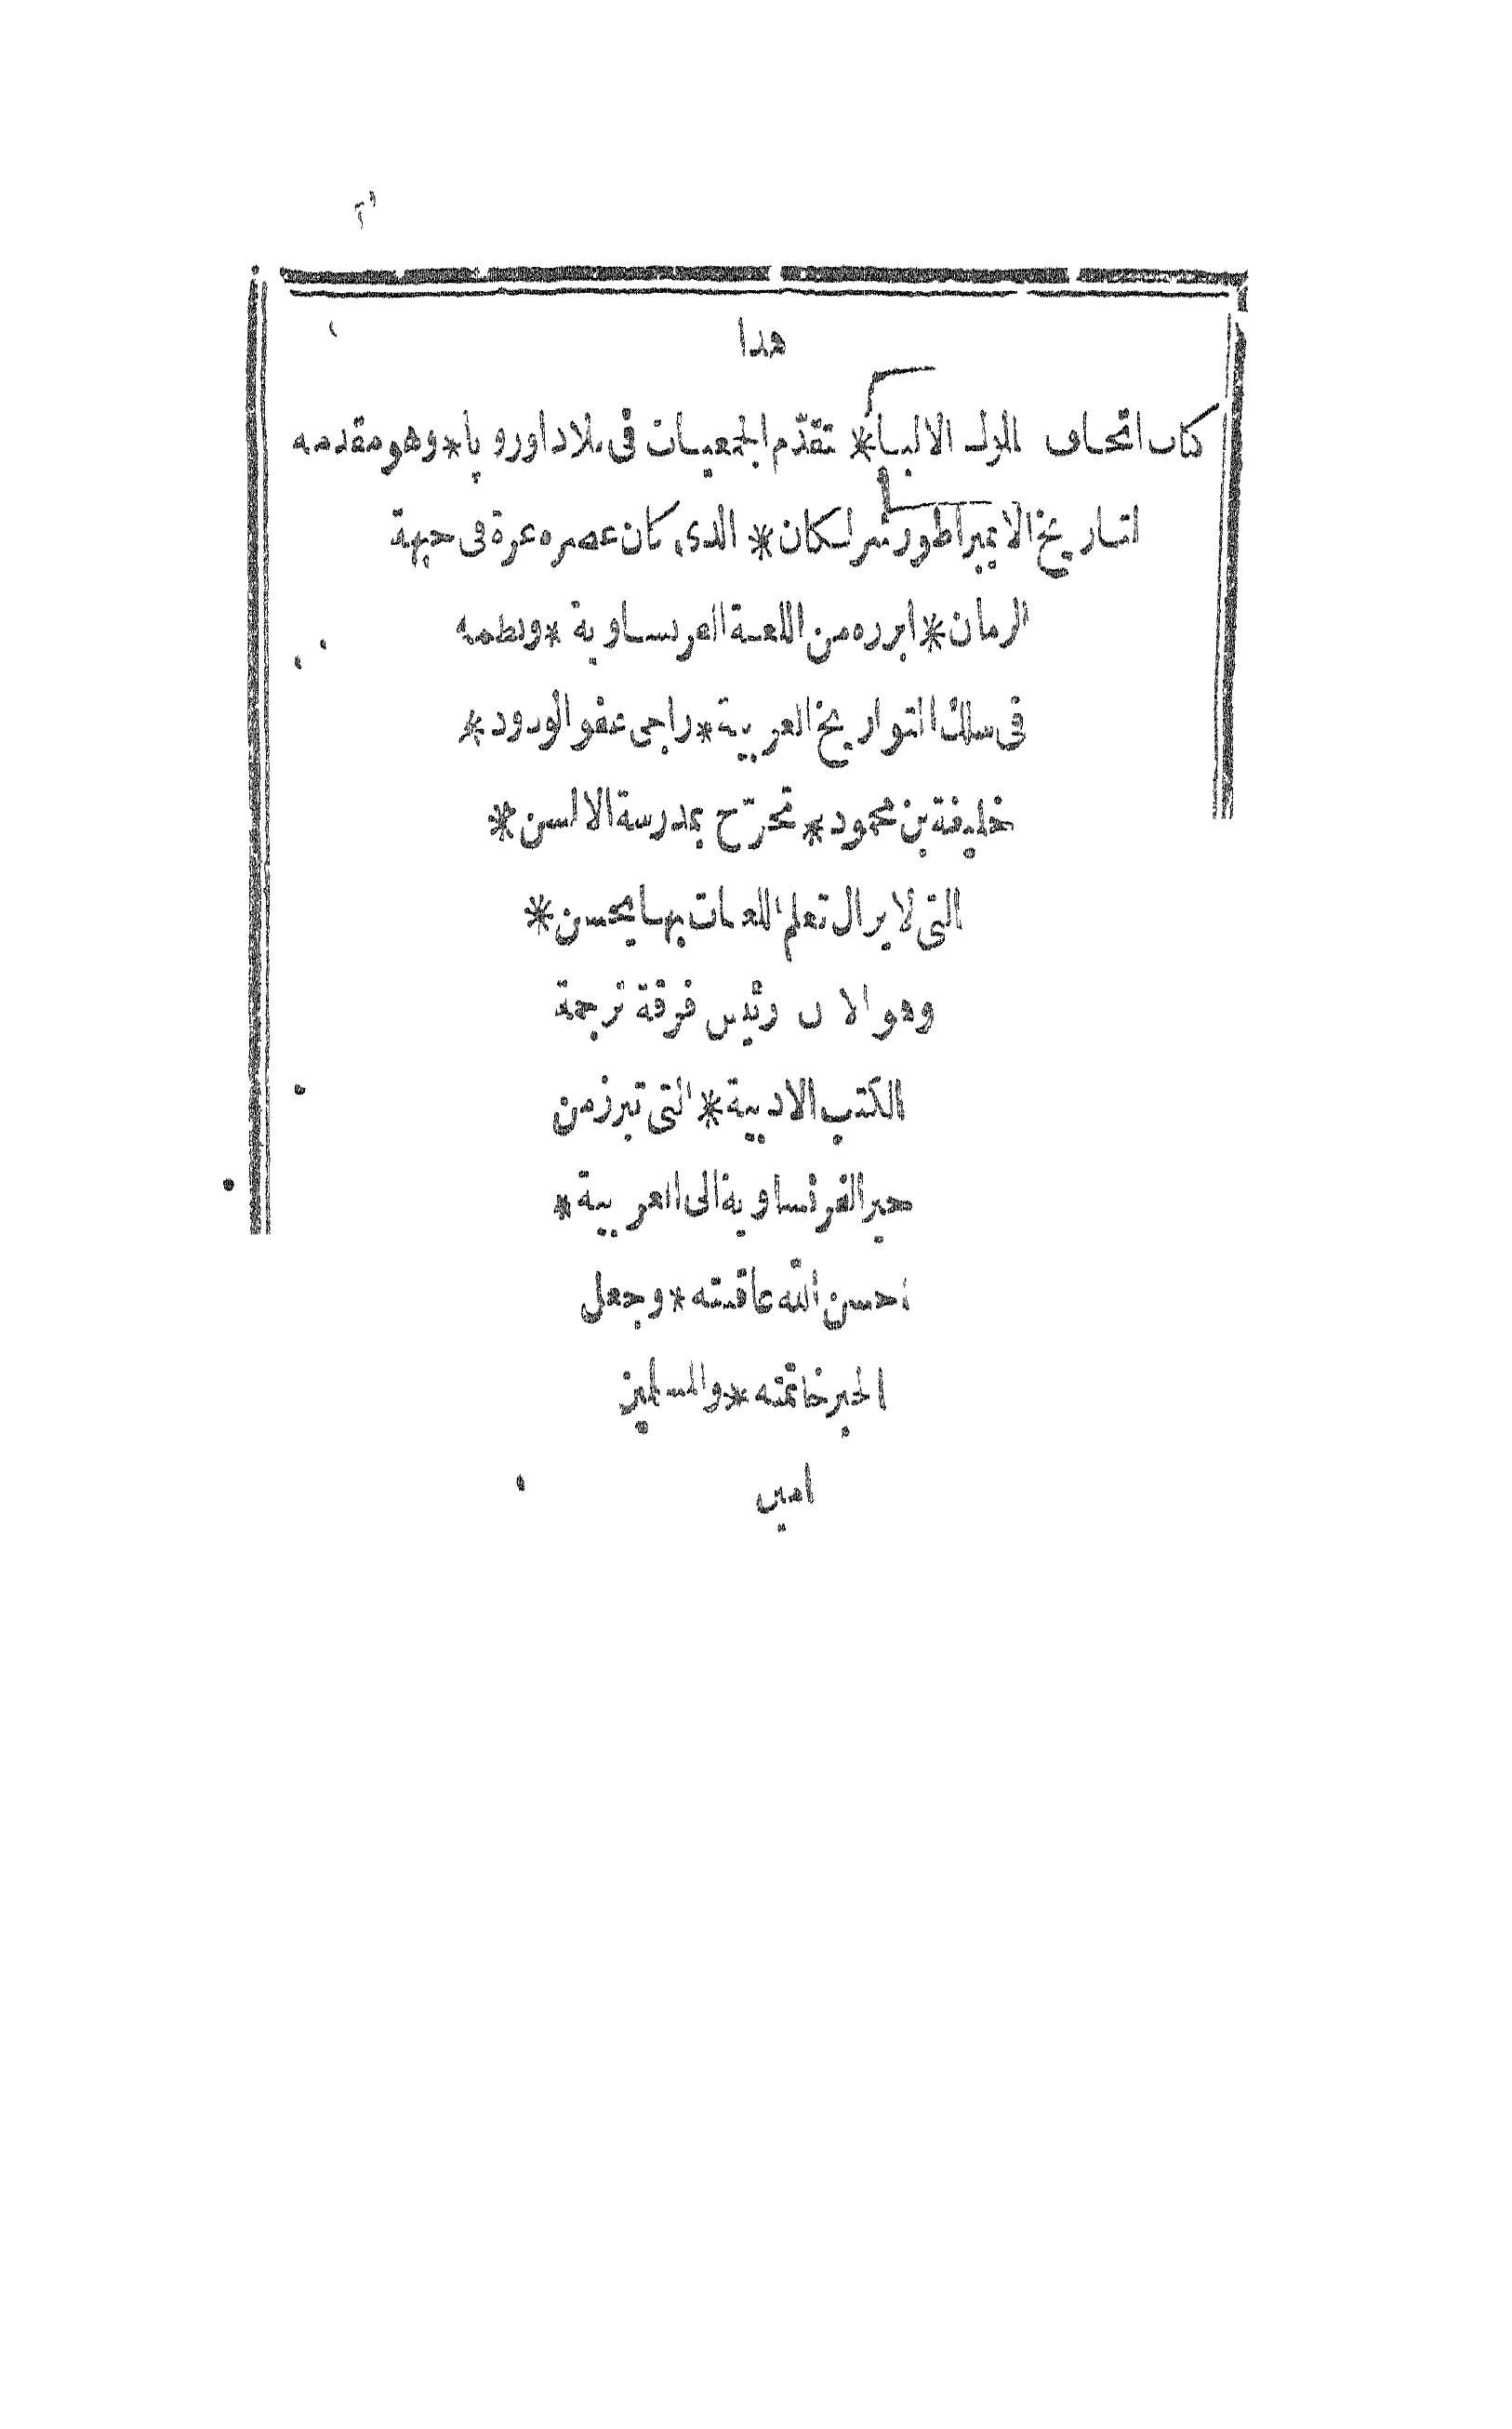 هذا
كتاب اتحاف الملوك الالبا* بتقدّم الجمعيات فى بلاد اوروپا* وهو مقدمة
لتاريخ الايمبراطور شرلكان* الذى كان عصره غرة فى جبهة
الزمان* ابرزه من اللغة الفرنساوية* ونظمه
فى سلك التواريخ العربية* راجى عفو الودود*
خليفة بن محمود* تخرّج بمدرسة الالسن*
التى لا يزال تعلم اللغات بها يحسن*
وهو الان رئيس فرقة ترجمة
الكتب الادبية* التى تبرز من
حيز الفرنساوية الى العربية*
احسن الله عاقبته* وجعل
الخير خاتمته* والمسلمين
امين